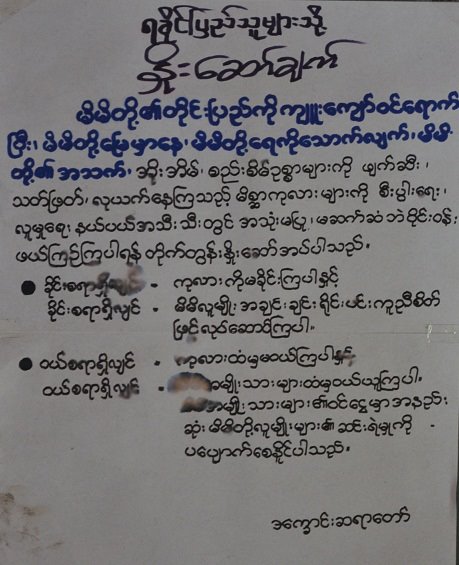 ရခိုင်ပြည်သူများသို့
နှိုးဆော်ချက်
မိမိတို့၏တိုင်းပြည်ကိုကျူးကျော်ဝင်ရောက်
ပြီး၊ မိမိတို့မြေမှာနေ၊ မိမိတို့ရေကိုသောက်လျက်၊ မိမိ
တို့၏အသက်၊ အိုးအိမ်၊ စည်းစိမ်ဥစ္စာများကို ဖျက်ဆီး၊
သတ်ဖြတ်၊ လုယက်နေကြသည့် မိစ္ဆာကုလားများကို စီးပွါးရေး၊
လူမှုရေး နယ်ပယ်အသီးသီးတွင် အသုံးမပြု၊ မဆက်ဆံဘဲ ဝိုင်းဝန်း
ဖယ်ကြဉ်ကြပါရန် တိုက်တွန်းနှိုးဆော်အပ်ပါသည်။
ခိုင်းစရာရှိလျင် - ကုလားကိုမခိုင်းကြပါနှင့်
ခိုင်းစရာရှိလျင် - မိမိလူမျိုးအချင်းချင်းရိုင်းပင်းကူညီစိတ်
ဖြင့်လုပ်ဆောင်ကြပါ။
ဝယ်စရာရှိလျင် - ကုလားထံမှမဝယ်ကြပါနှင့်
ဝယ်စရာရှိလျင် - အမျိုးသားများထံမှဝယ်ယူကြပါ။
အမျိုးသားများ၏ဝင်ငွေမှာအနည်း
ဆုံးမိမိတို့လူမျိုးများ၏ဆင်းရဲမှုကို
ပပျောက်စေနိုင်ပါသည်။
ဒက္ခောင်းဆရာတော်